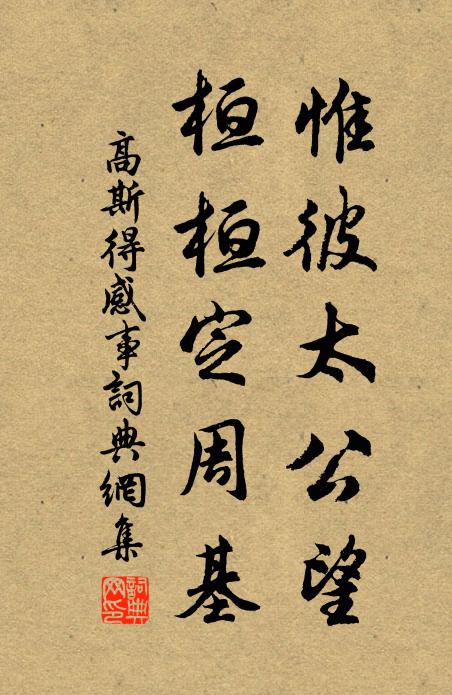 惟彼太公望
桓桓定周基
高斯得感事詞典網集
詞典網印